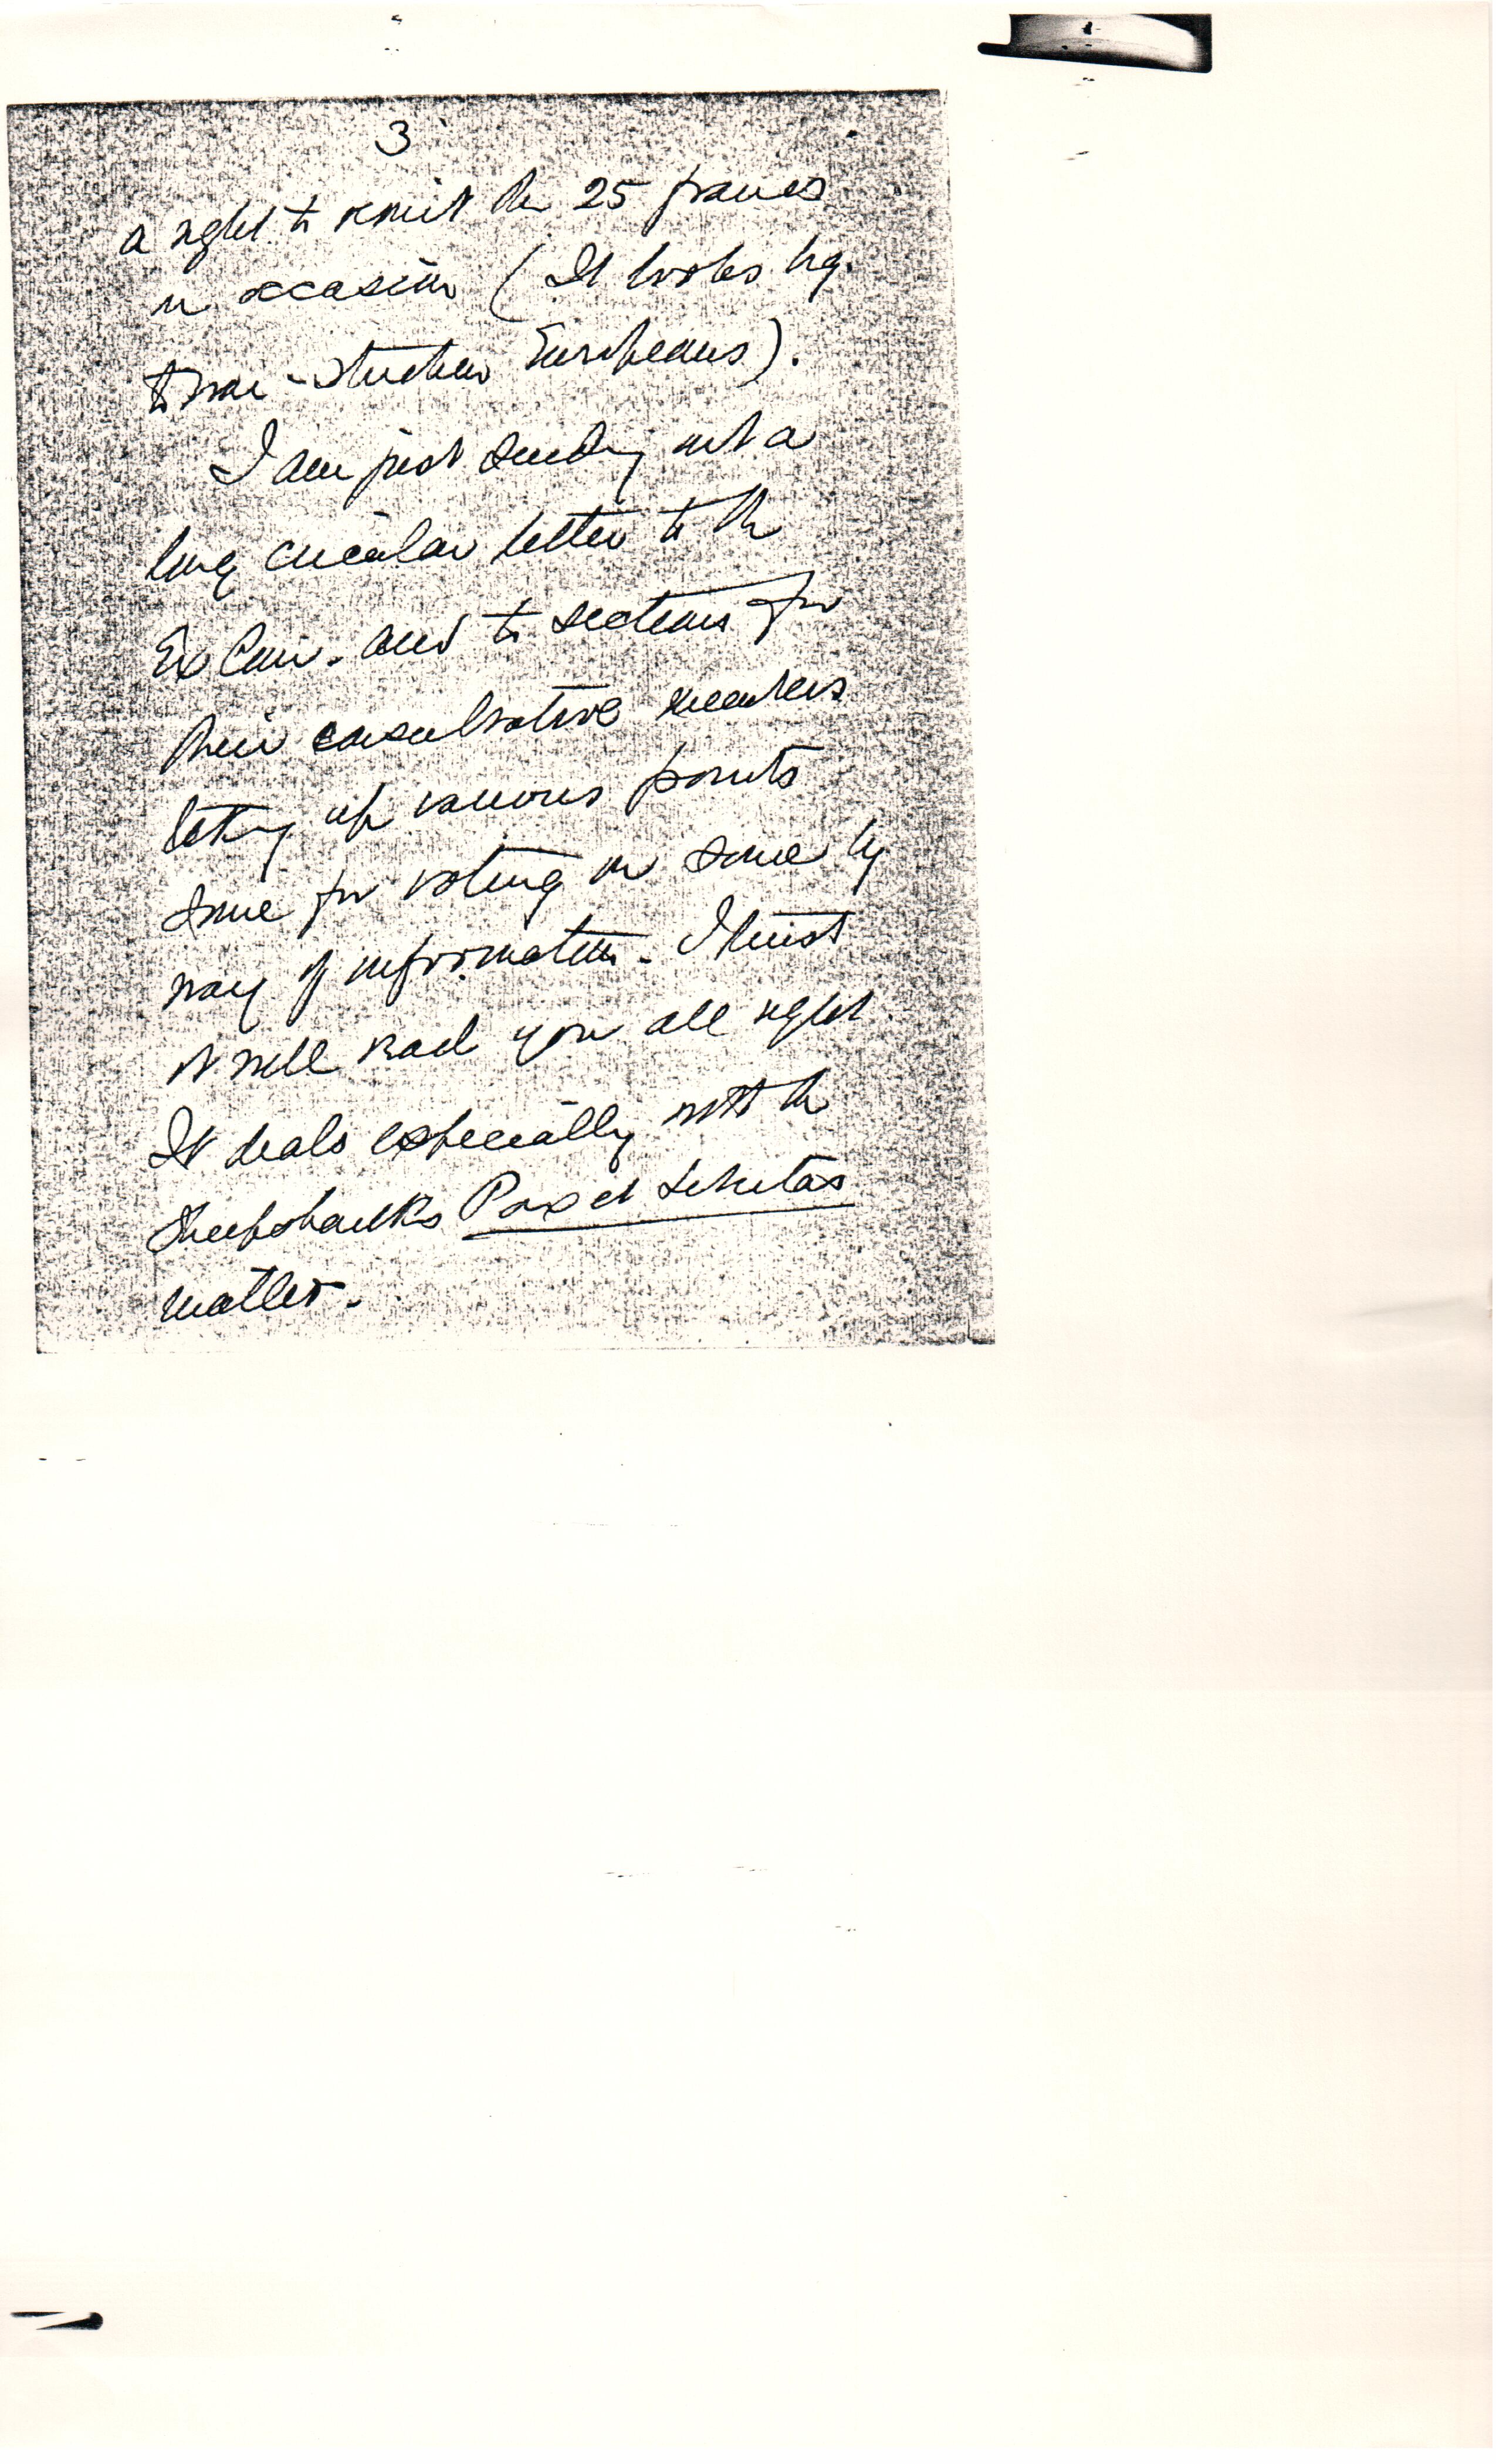 3
a right to remit the 25 francs
on occasion (It looks big
to war-stricken Europeans).
I am just sending out a
long circular letter to the
Ex Com. and to sections for
their consultative members
taking up various points
some for voting on some by
way of information. I trust
it will reach you all right.
It deals especially with the
Sheepshanks Pax et Libertas
matter.